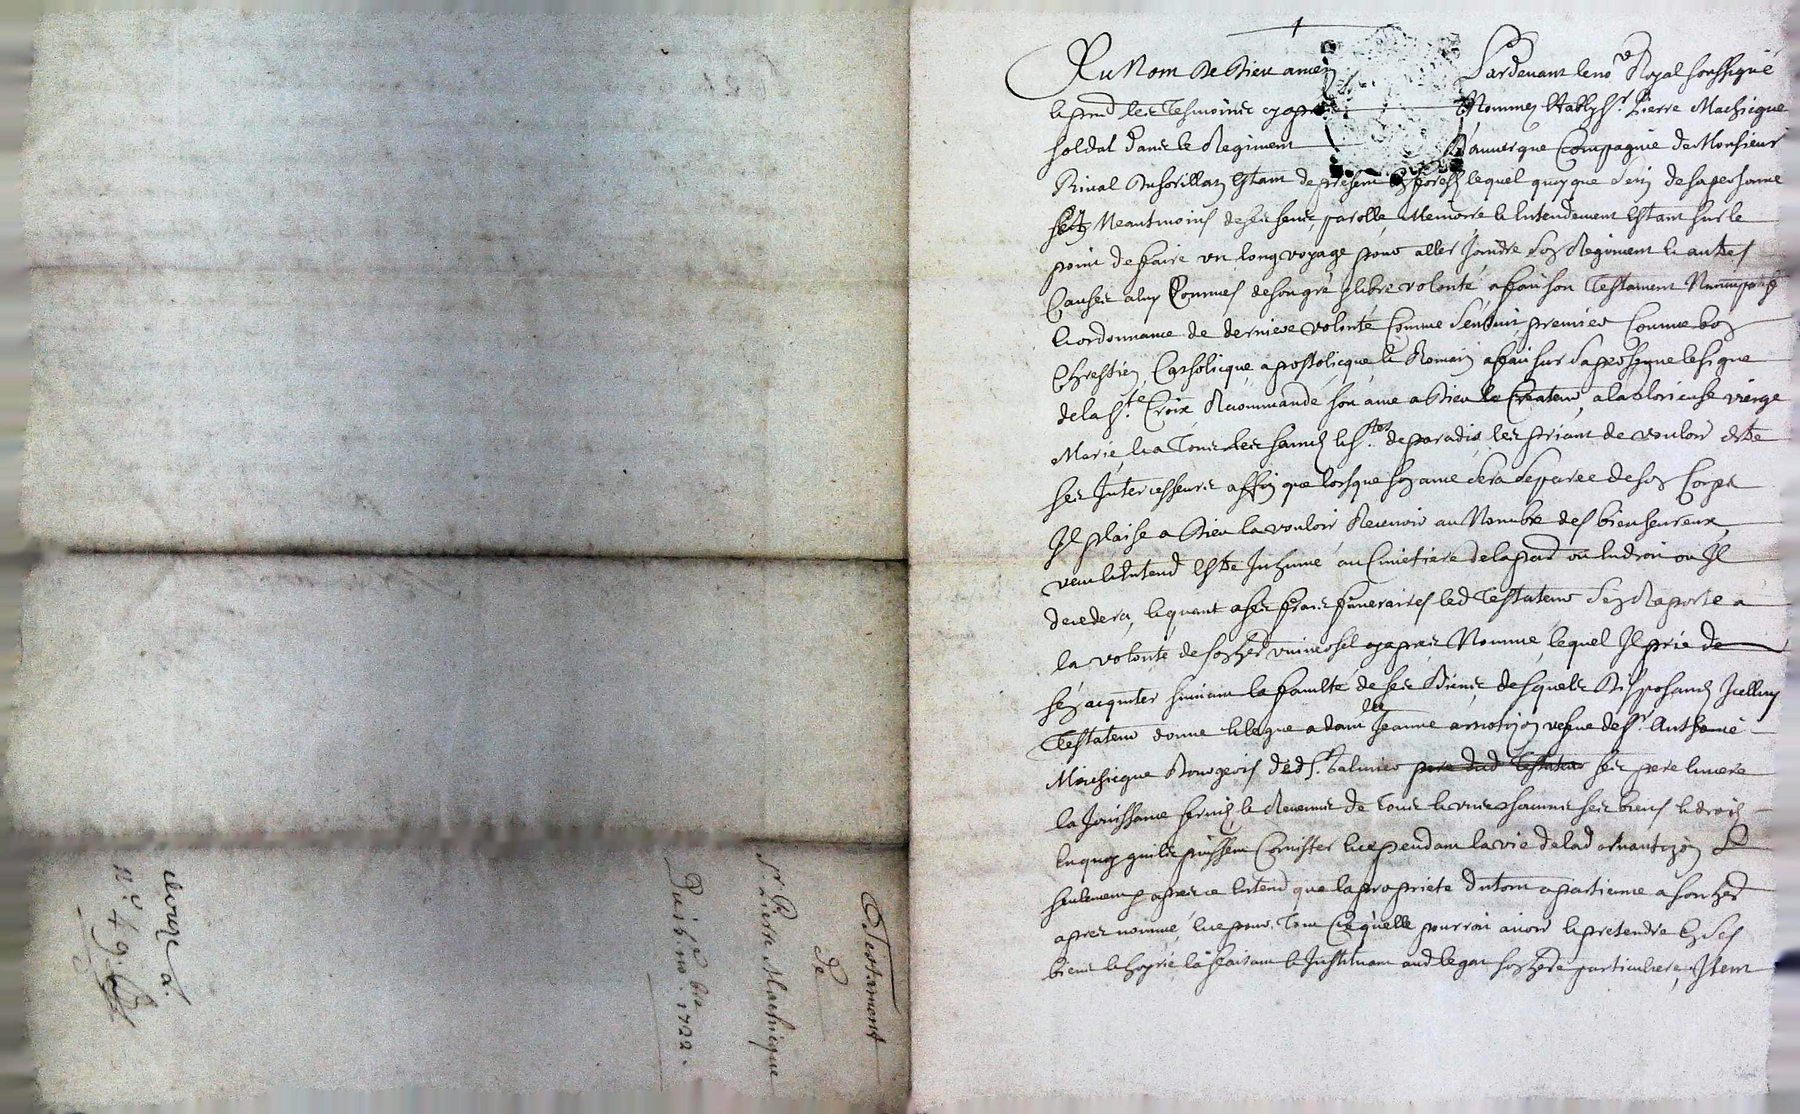 Testament
de
Sr Pierre Machicque
Du 5 no.bre 1722.
cloage a.
n.o 49.
Au Nom de Dieu amen Pardevant le nore Royal soussigné
& presd les tesmoins cy apres Nommes Estably Sr. Pierre Machicque
soldat dans le Regiment d'auvergne Compagnie de Monsieur
Rival estant de present lequel quoyque de sa personne
Neantmoins de ses sens, parolle, Memoire & Entendement Estant sur le
point de faire un long voyage pour aller Joindre son Regiment & autres
Causes a luy Connues de son gré & libre volonté a fait son Testament Nuncupatif
& ordonnance de derniere volonté Comme s'ensuit premier Comme bon
Chrestien Catholicque apostolicque & Romain a fait sur sa personne le signe
de la Ste Croix Recommandé son ame a Dieu le Createur, a la glorieuse vierge
Marie, & a Tous les saincts & Stes de paradis les priant de vouloir estre
ses Intercesseurs affin que lorsque son ame sera separée de son Corps
Il plaise a Dieu la vouloir Recevoir au Nombre des bienheureux,
veut & Entend Estre Inhumé au Cimetiere de la part ou Endroit ou Il
decedera, & quant a ses frais funeraires led Testateur s'en Raporte a
la volonté de son her universel cy apres Nommé, lequel Il prie de
s'en acquiter suivant la faculté de ses Biens desquels Disposant Icelluy
Testateur donne & legue a damlle Jeanne vefve de Sr. Anthoine
Machicque Bourgeois dud St. Galmier pere dud Testateur ses pere & mere
la Jouissance fruicts & Revenus de Tous & uns chacuns ses biens & droits
En quoy qu'ils puissent Consister & ce pendant la vie de lad
seulement & apres ce Entend que la propriete du tout apartienne a son her
apres nommé, & ce pour Tout Ce qu'elle pourroit avoir & pretendre En ses
biens & hoyrie la faisant & Instituant aud legat son here particuliere, Item